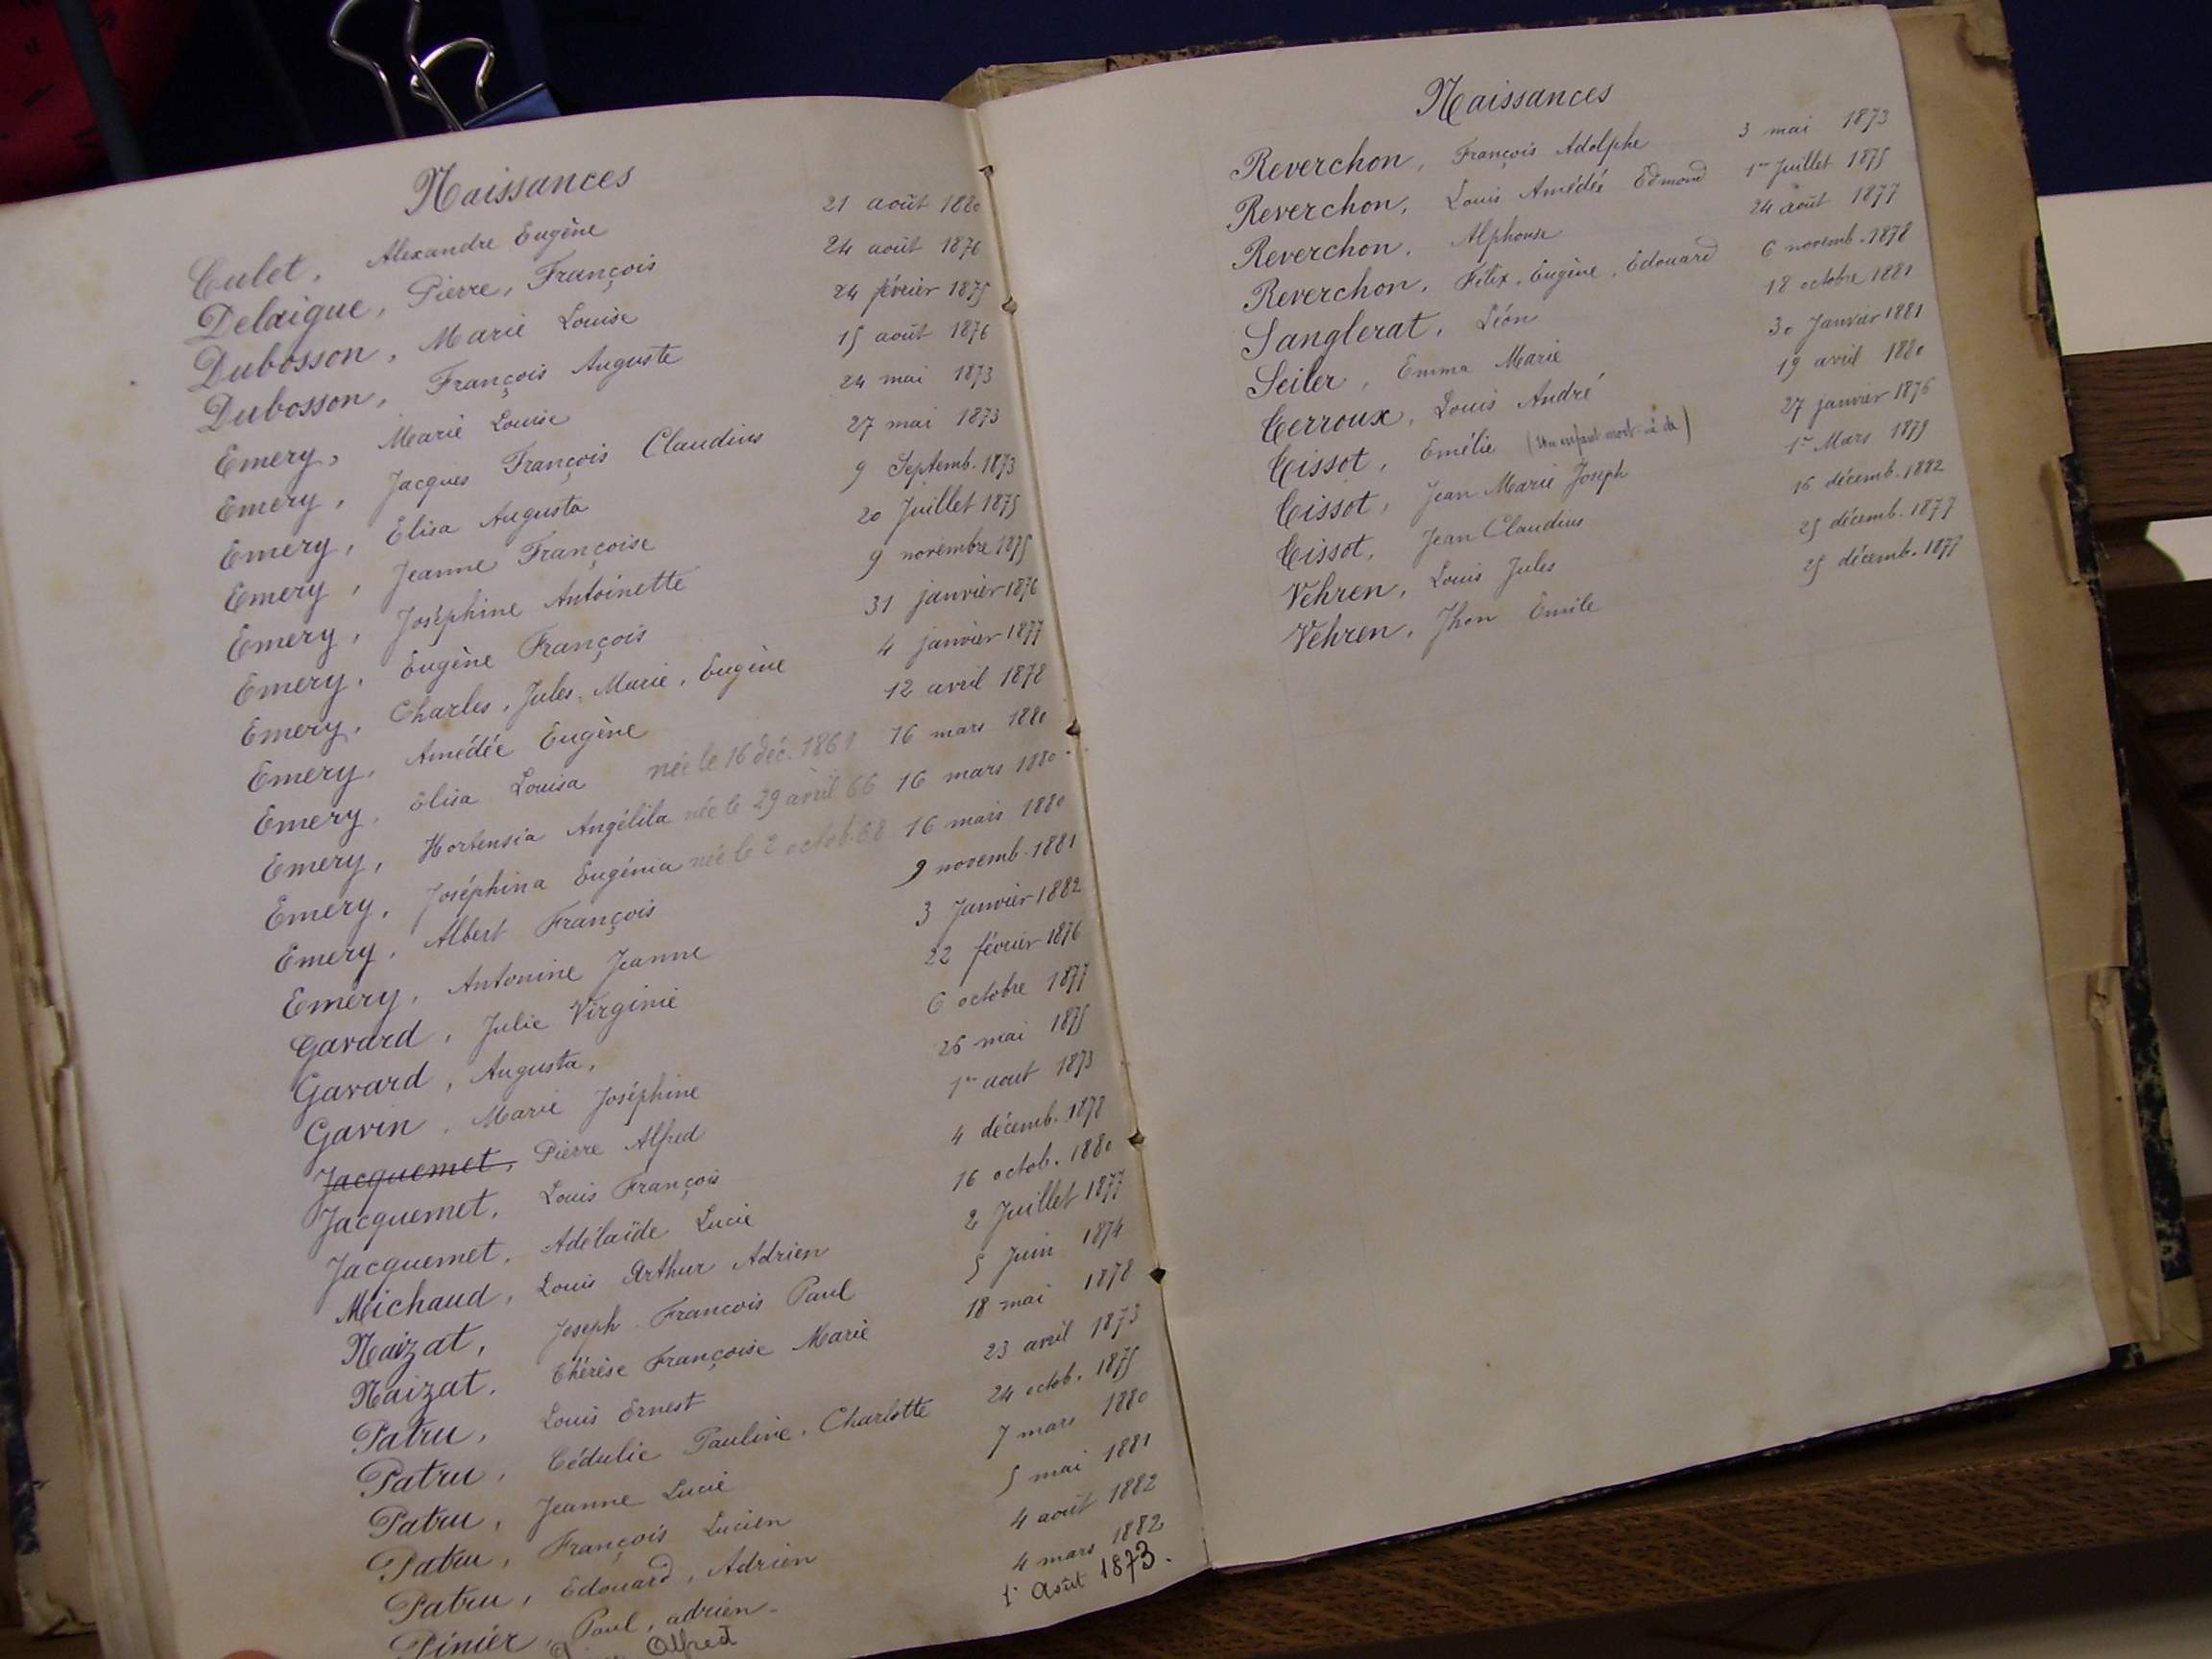 Naissances
Culet, Alexandre Eugène 21 août 1880
Delaigue, Pierre, François 24 août 1876
Dubosson, Marie Louise 24 février 1875
Dubosson, François Auguste 15 août 1876
Emery, Marie Louise 24 mai 1873
Emery, Jacques François Claudius 27 mai 1873
Emery, Elisa Augusta 9 Septemb. 1873
Emery, Jeanne Françoise 20 Juillet 1875
Emery, Joséphine Antoinette 9 novembre 1875
Emery, Eugène François 31 janvier 1876
Emery, Charles, Jules, Marie, Eugène 4 janvier 1877
Emery, Amédée Eugène 12 avril 1878
Emery, Elisa Louisa née le 16 déc. 1861 16 mars 1880
Emery, Hortensia Angélila née le 29 avril 66 16 mars 1880
Emery, Joséphina Eugénia née le 2 octob. 68 16 mars 1880
Emery, Albert François 9 novemb. 1881
Emery, Antonine Jeanne 3 Janvier 1882
Gavard, Julie Virginie 22 février 1876
Gavard, Augusta, 6 octobre 1877
Gavin, Marie Joséphine 26 mai 1875
Jacquemet, Pierre Alfred 1er aout 1873
Jacquemet, Louis François 4 décemb. 1878
Jacquemet, Adélaïde Lucie 16 octob. 1880
Michaud, Louis Arthur Adrien 2 Juillet 1877
Naizat, Joseph François Paul 5 Juin 1874
Naizat, Thérèse Françoise Marie 18 mai 1878
Patru, Louis Ernest 23 avril 1873
Patru, Cédulie Pauline, Charlotte 24 octob. 1875
Patru, Jeanne Lucie 7 mars 1880
Patru, François Lucien 5 mai 1881
Patru, Edouard, Adrien 4 août 1882
Pinier, Paul, adrien- 4 mars 1882
Alfred 1er Août 1873.
Naissances
Reverchon, François Adolphe 3 mai 1873
Reverchon, Louis Amédée Edmond 1er Juillet 1875
Reverchon, Alphonse 24 août 1877
Reverchon, Félix, Eugène, Edouard 6 novemb. 1878
Sanglerat, Léon 18 octobre 1881
Seiler, Emma Marie 30 Janvier 1881
Terroux, Louis André 19 avril 1880
Tissot, Emélie (Un enfant mort-né de) 27 janvier 1876
Tissot, Jean Marie Joseph 1er Mars 1879
Tissot, Jean Claudius 16 décemb. 1882
Vehren, Louis Jules 25 décemb. 1877
Vehren, Jhon Emile 25 décemb. 1877